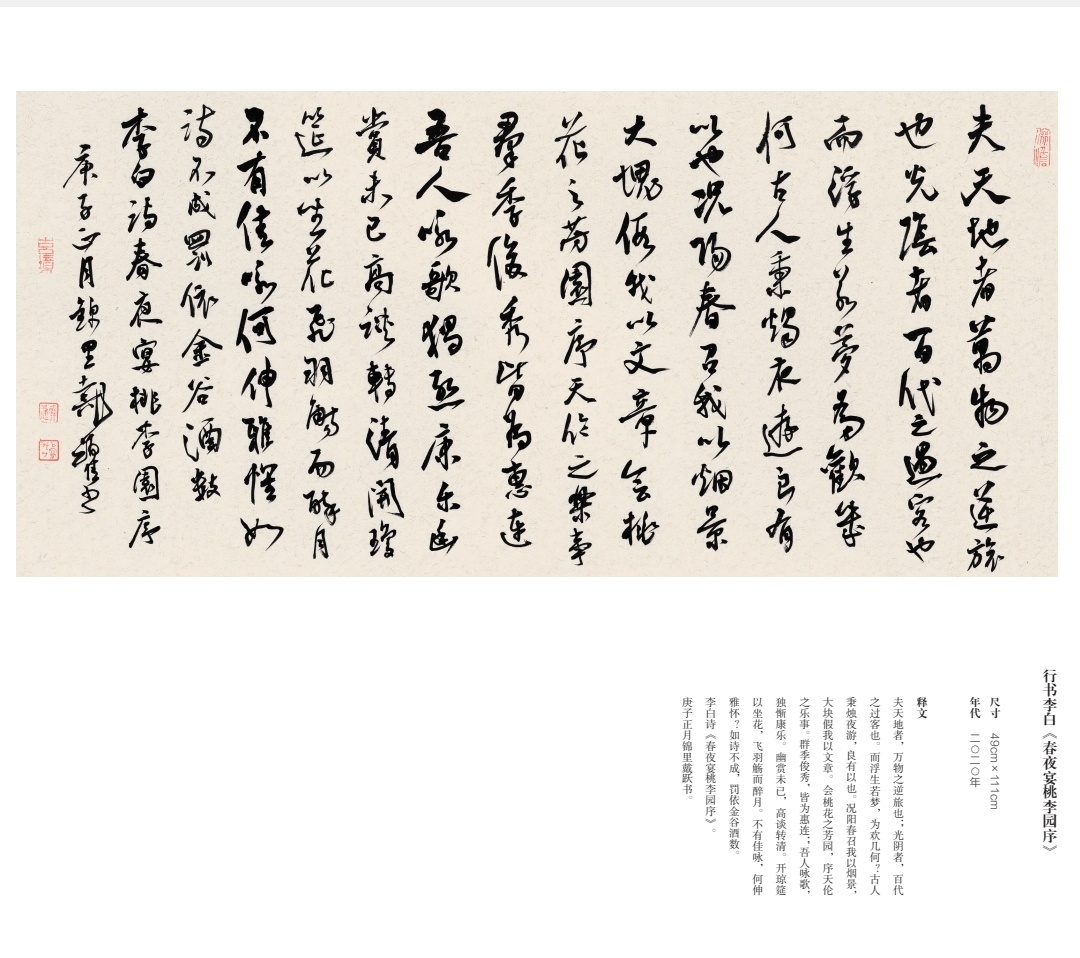 夫天地者萬物之逆旅
也光陰者百代之過客也
而浮生若夢為歡幾
何古人秉燭夜遊良有
以也況陽春召我以烟景
大塊假我以文章會桃
花之芳園序天倫之樂事
羣季俊秀皆為惠連
吾人咏歌獨慚康乐幽
賞未已高談轉清開瓊
筵以坐花飛羽觴而醉月
不有佳咏何伸雅懷如
詩不成罰依金谷酒數
李白詩春夜宴桃李園序
庚子正月錦里戴躍书
行书李白《春夜宴桃李园序》
尺寸 49cm×111cm
年代 二〇二〇年
释文
夫天地者，万物之逆旅也；光阴者，百代
之过客也。而浮生若梦，为欢几何？古人
秉烛夜游，良有以也。况阳春召我以烟景，
大块假我以文章。会桃花之芳园，序天伦
之乐事。群季俊秀，皆为惠连；吾人咏歌，
独惭康乐。幽赏未已，高谈转清。开琼筵
以坐花，飞羽觞而醉月。不有佳咏，何伸
雅怀？如诗不成，罚依金谷酒数。
李白诗《春夜宴桃李园序》。
庚子正月锦里戴跃书。